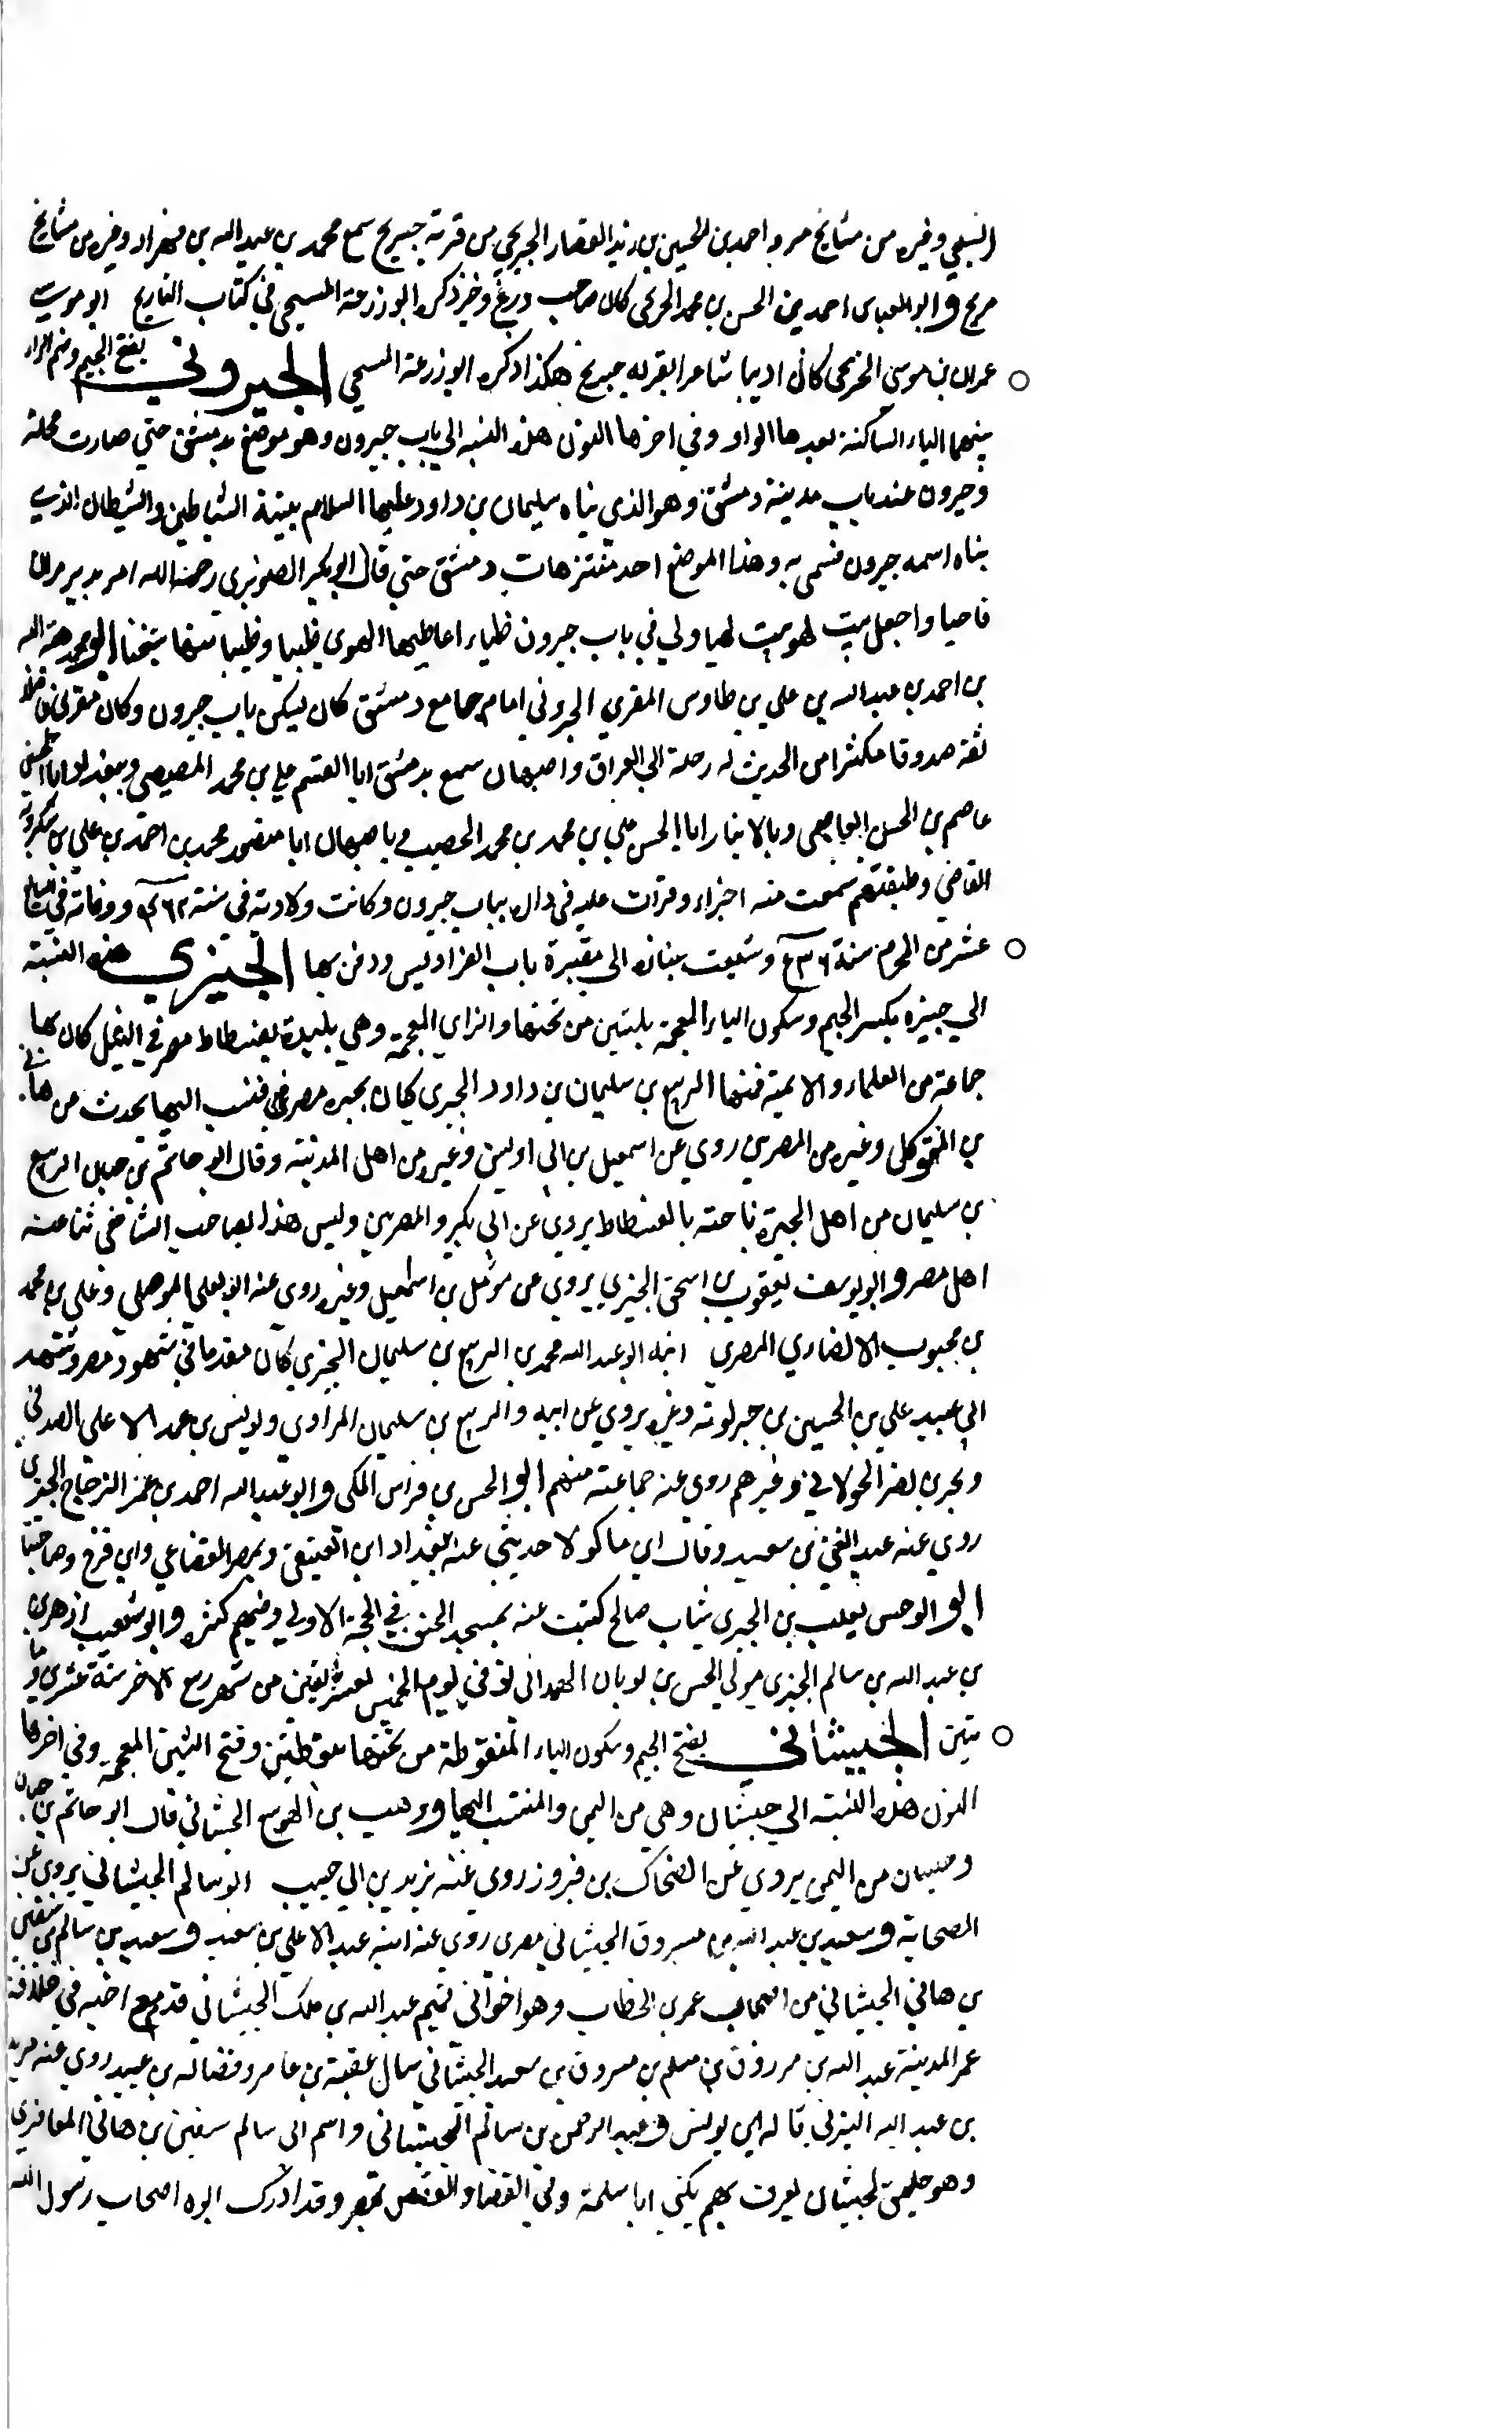 السبعي وغيره من مشايخ مرو احمد بن الحسين بن زيد القصار الجيرنجي من قرية جيرنج سمع محمد بن عبد الله بن قهزاد وغيره من مشايخ
مرو و ابو العباس احمد بن الحسن بن محمد الجرنجى كان صاحب ورع وخير ذكره ابو زرعة السنجي في كتاب التاريخ ابو موسى
عمران بن موسى الجيرنجى كان اديبا شاعرا بقرية جيرنج هكذا ذكره ابو زرعة السنجي الجيروني بفتح الجيم وضم الراء
بينهما الياء الساكنة بعدها الواو وفي اخرها النون هذه النسبة الي باب جيرون وهو موضع بدمشق حتي صارت محلة
وجيرون عند باب مدينة دمشق وهو الذي بناه سليمان بن داود عليهما السلام بنته الشياطين والشيطان الذي
بناه اسمه جيرون فسمى به وهذا الموضع احد منتزهات دمشق حتي قال ابو بكر الصنوبرى رحمه الله امر بدير مران
فاحيا واجعل بيت لهوي بيت لهيا ولي في باب جيرون ظباء اعاطيها الهوى ظبيا وظبيا منها شيخنا ابو محمد هبة الله
بن احمد بن عبد الله بن علي بن طاوس المقري الجيروني امام جامع دمشق كان يسكن باب جيرون وكان مقريا فاضلا
ثقة صدوقا مكثرا من الحديث له رحلة الي العراق واصبهان سمع بدمشق ابا القسم علي بن محمد المصيصي وببغداد ابا الحسين
عاصم بن الحسن العاصمى وبالانبار ابا الحسن علي بن محمد بن محمد الخطيب وباصبهان ابا منصور محمد بن احمد بن علي بن شكرويه
القاضي وطبقتهم سمعت منه اجزاء وقرات عليه في داره بباب جيرون وكانت ولادته في سنة ٤٦٢ ووفاته في سابع
عشر من المحرم سنة ٥٣٦ وشيعت جنازته الى مقبرة باب الفراديس ودفن بها الجيزي هذه النسبة
الي جيزة بكسر الجيم وسكون الياء المعجمة بثنتين من تحتها والزاي المعجمة وهي بليدة بفسطاط مصر في النيل كان بها
جماعة من العلماء والايمة فمنها الربيع بن سليمان بن داود الجيزى كان بجيزه مصر فنسب اليها يحدث من هاني
بن المتوكل وغيره من المصريين روي عن اسمعيل بن ابي اويس وغيره من اهل المدينة وقال ابو حاتم بن حبان الربيع
بن سليمان من اهل الجيزة ناحية بالفسطاط يروي عن ابي بكير والمصريين وليس هذا بصاحب الشافعي ثنا عنه
اهل مصر و ابو يوسف يعقوب بن اسحق الجيزي يروي عن مؤمل بن اسمعيل وغيره روي عنه ابو يعلي الموصلي وعلي بن محمد
بن محبوب الانصاري المصري ابنه ابو عبد الله محمد بن الربيع بن سليمان الجيزي كان مقدما في شهود مصر وشهد
ابي عبيد علي بن الحسين بن حربويه وغيره يروي عن ابيه والربيع بن سليمان المرادي ويونس بن عبد الاعلي الصدفي
وبحر بن نصر الخولاني وغيرهم روي عنه جماعة منهم ابو الحسن بن فراس المكي و ابو عبد الله احمد بن عمر الزجاج الجيزي
روي عنه عبد الغني بن سعيد وقال ابن ماكولا حدثني عنه ببغداد ابن العتيقي وبمصر القضاعي وابن فرج وصاحبنا
ابو الوحش الجيزى شاب صالح كتبت عنه بمسجد الخيف في الحجة الاولي وفيهم كثرة و ابو شعيب ازهر
بن عبد الله بن سالم الجيزى مولي الحسن بن ثوبان الهمداني توفي يوم الخميس لعشر بقين من شهر ربيع الاخر سنة عشرين وما
يتين الجيشاني بفتح الجيم وسكون الياء المنقوطة من تحتها بنقطتين وفتح الشين المعجمة وفي اخرها
النون هذه النسبة الي جيشان وهي من اليمن والمنتسب اليها و وهب بن الهوشع الجيشاني قال ابو حاتم بن حبان
وجيشان من اليمن يروي عن الضحاك بن فيروز روي عنه يزيد بن ابي حبيب ابو سالم الجيشاني يروي عن
الصحابة و سعيد بن عبد الله بن مسروق الجيشاني مصرى روي عنه ابنه عبد الاعلي بن سعيد و سعيد بن سالم بن سفين
بن هاني الجيشاني من اصحاب عمر بن الخطاب وهو اخو ابي تميم عبد الله بن ملك الجيشاني قدم مع اخيه في خلافة
عمر المدينة عبد الله بن مرزوق بن مسلم بن مسروق بن سعيد الجيشاني سال عقبة بن عامر وفضاله بن عبيد روي عنه مرثد
بن عبد الله اليزني قاله ابن يونس و عبد الرحمن بن سالم الجيشاني واسم ابي سالم سفين بن هاني المعافري
وهو حليف لجيشان يعرف بهم يكني ابا سلمة ولي القضا والقصص بمصر وقد ادرك ابوه اصحاب رسول الله